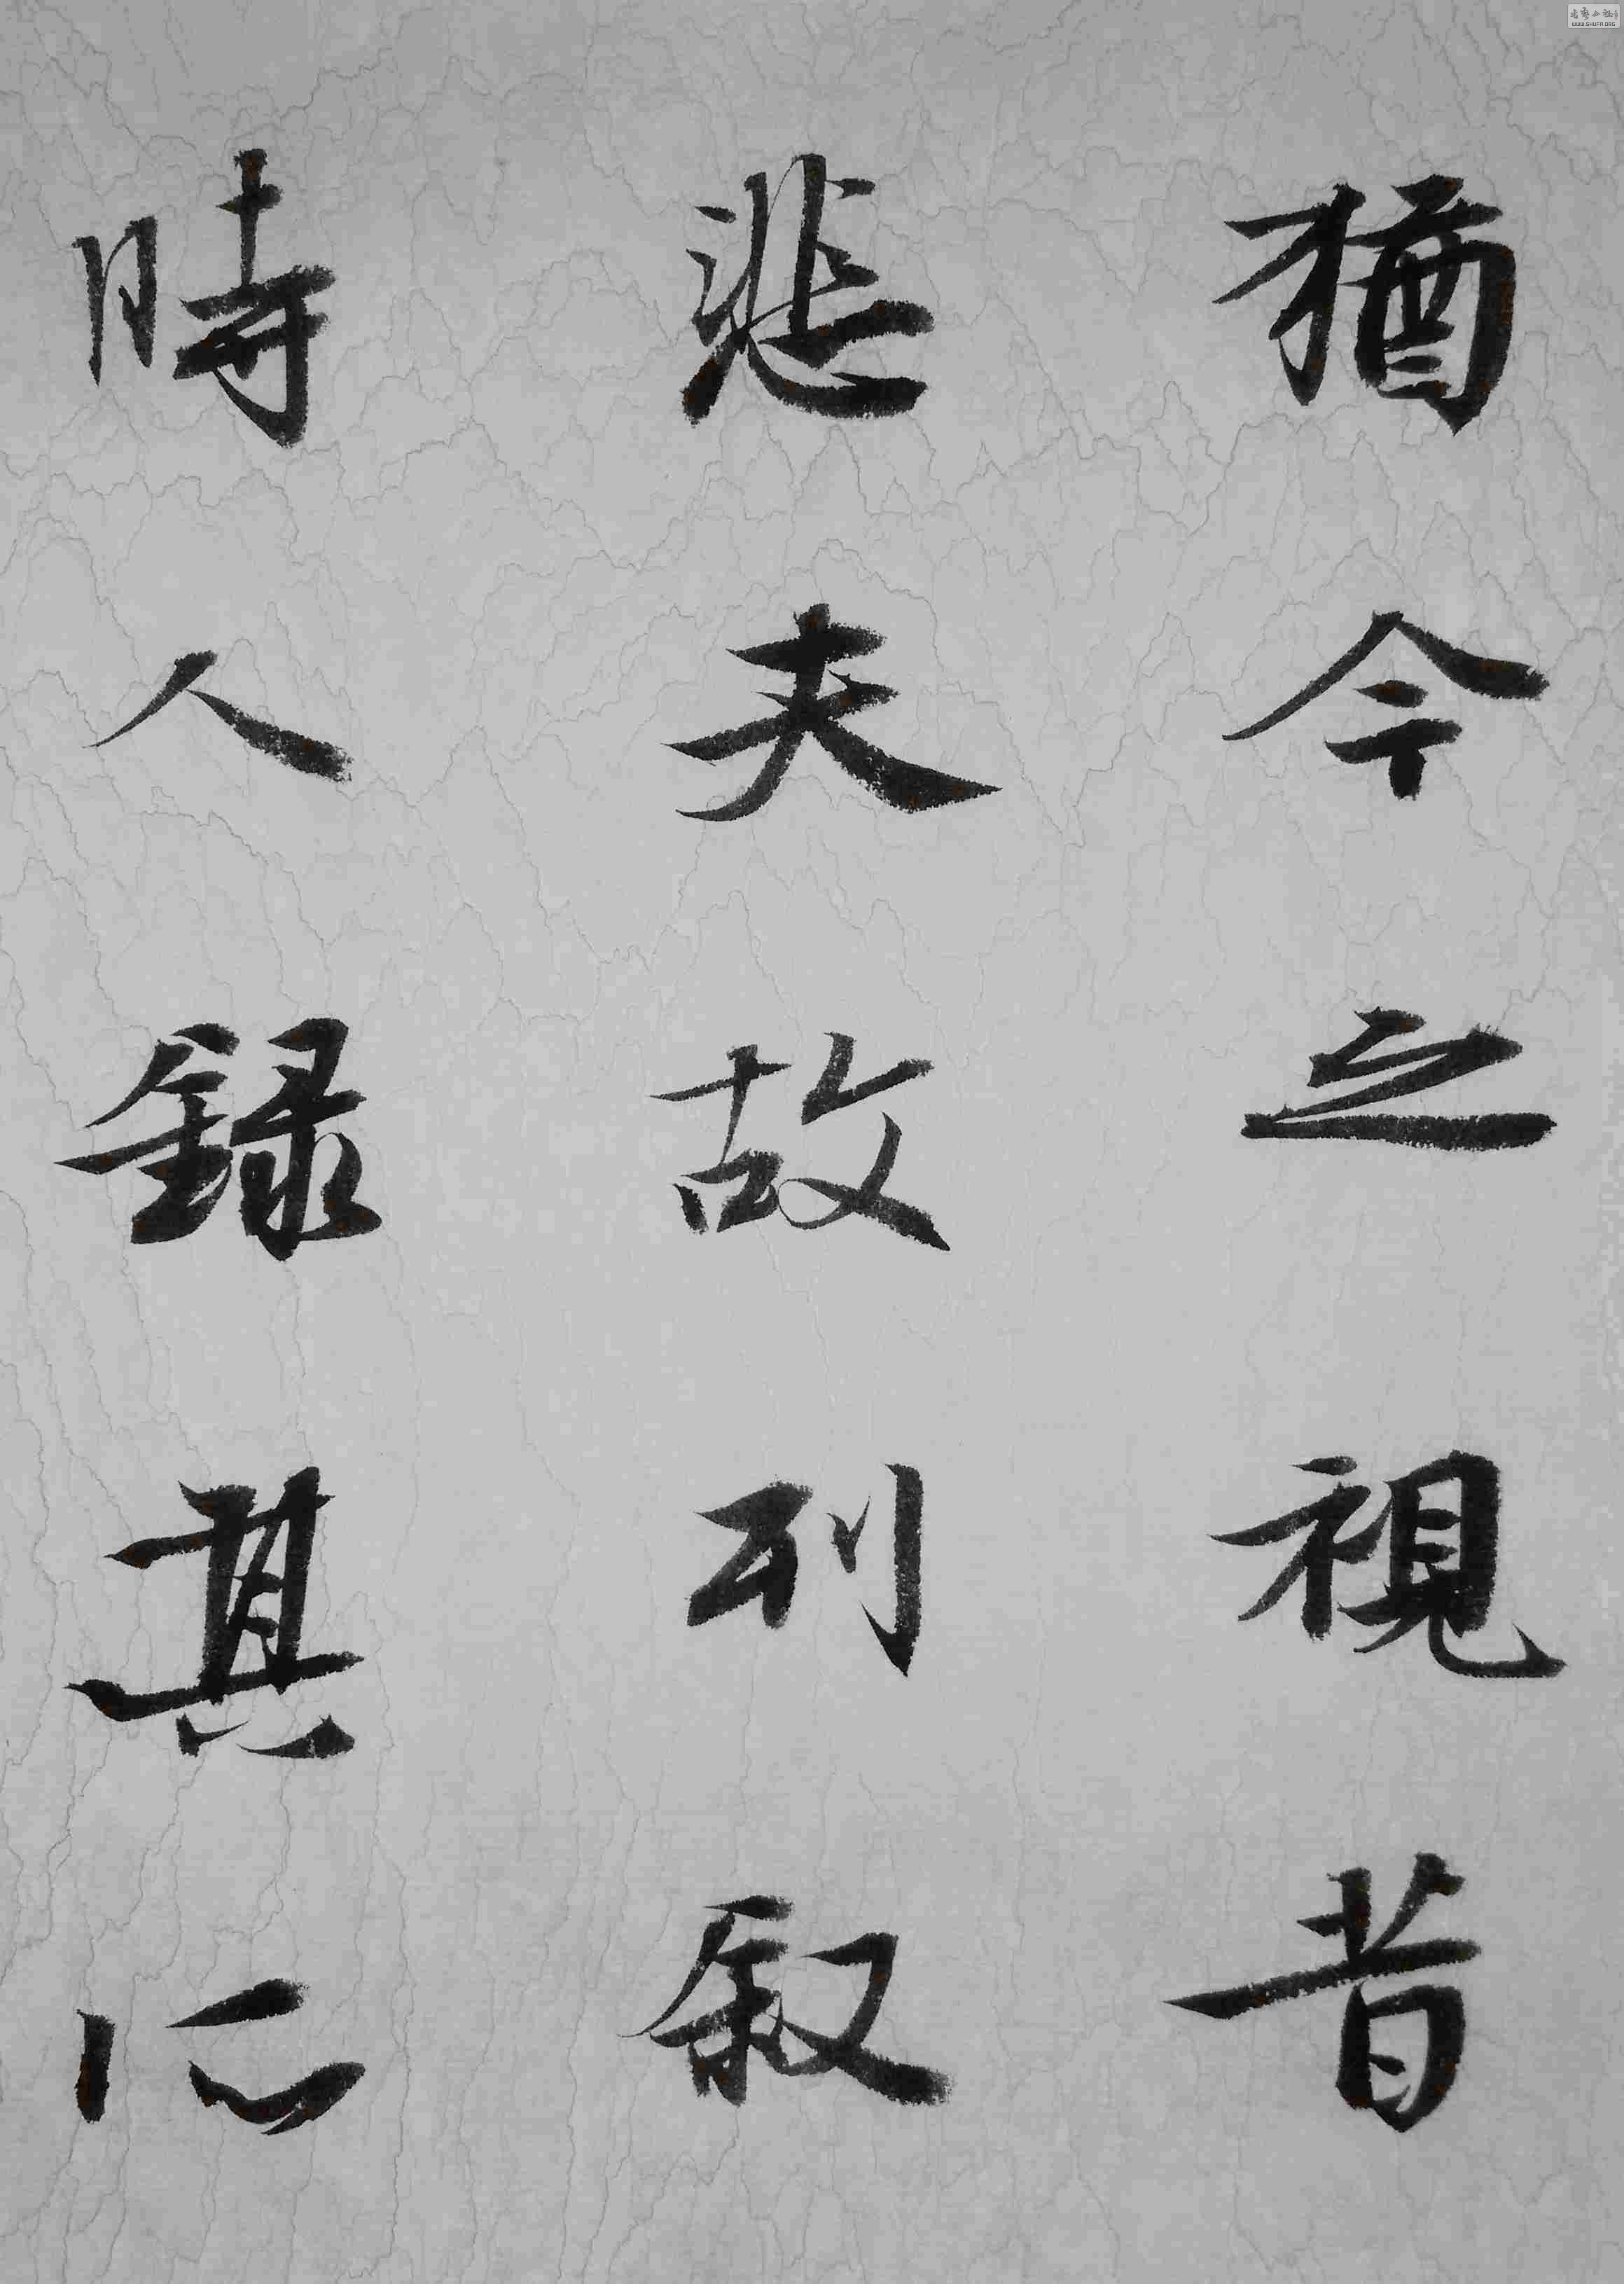 猶今之視昔
悲夫故列叙
時人録其所
WWW.SHUFA.ORG